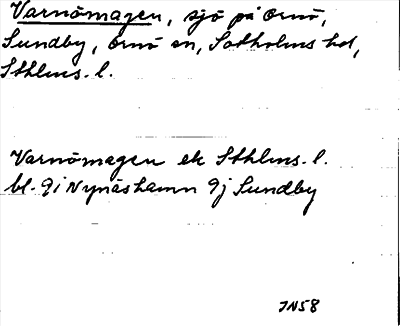 Varnömagen, sjö på Ornö,
Sundby, Ornö sn, Sotholms hd,
Sthlms. l.
Varnömagen ek Sthlms. l.
bl. 9i Nynäshamn 9j Sundby
JN58